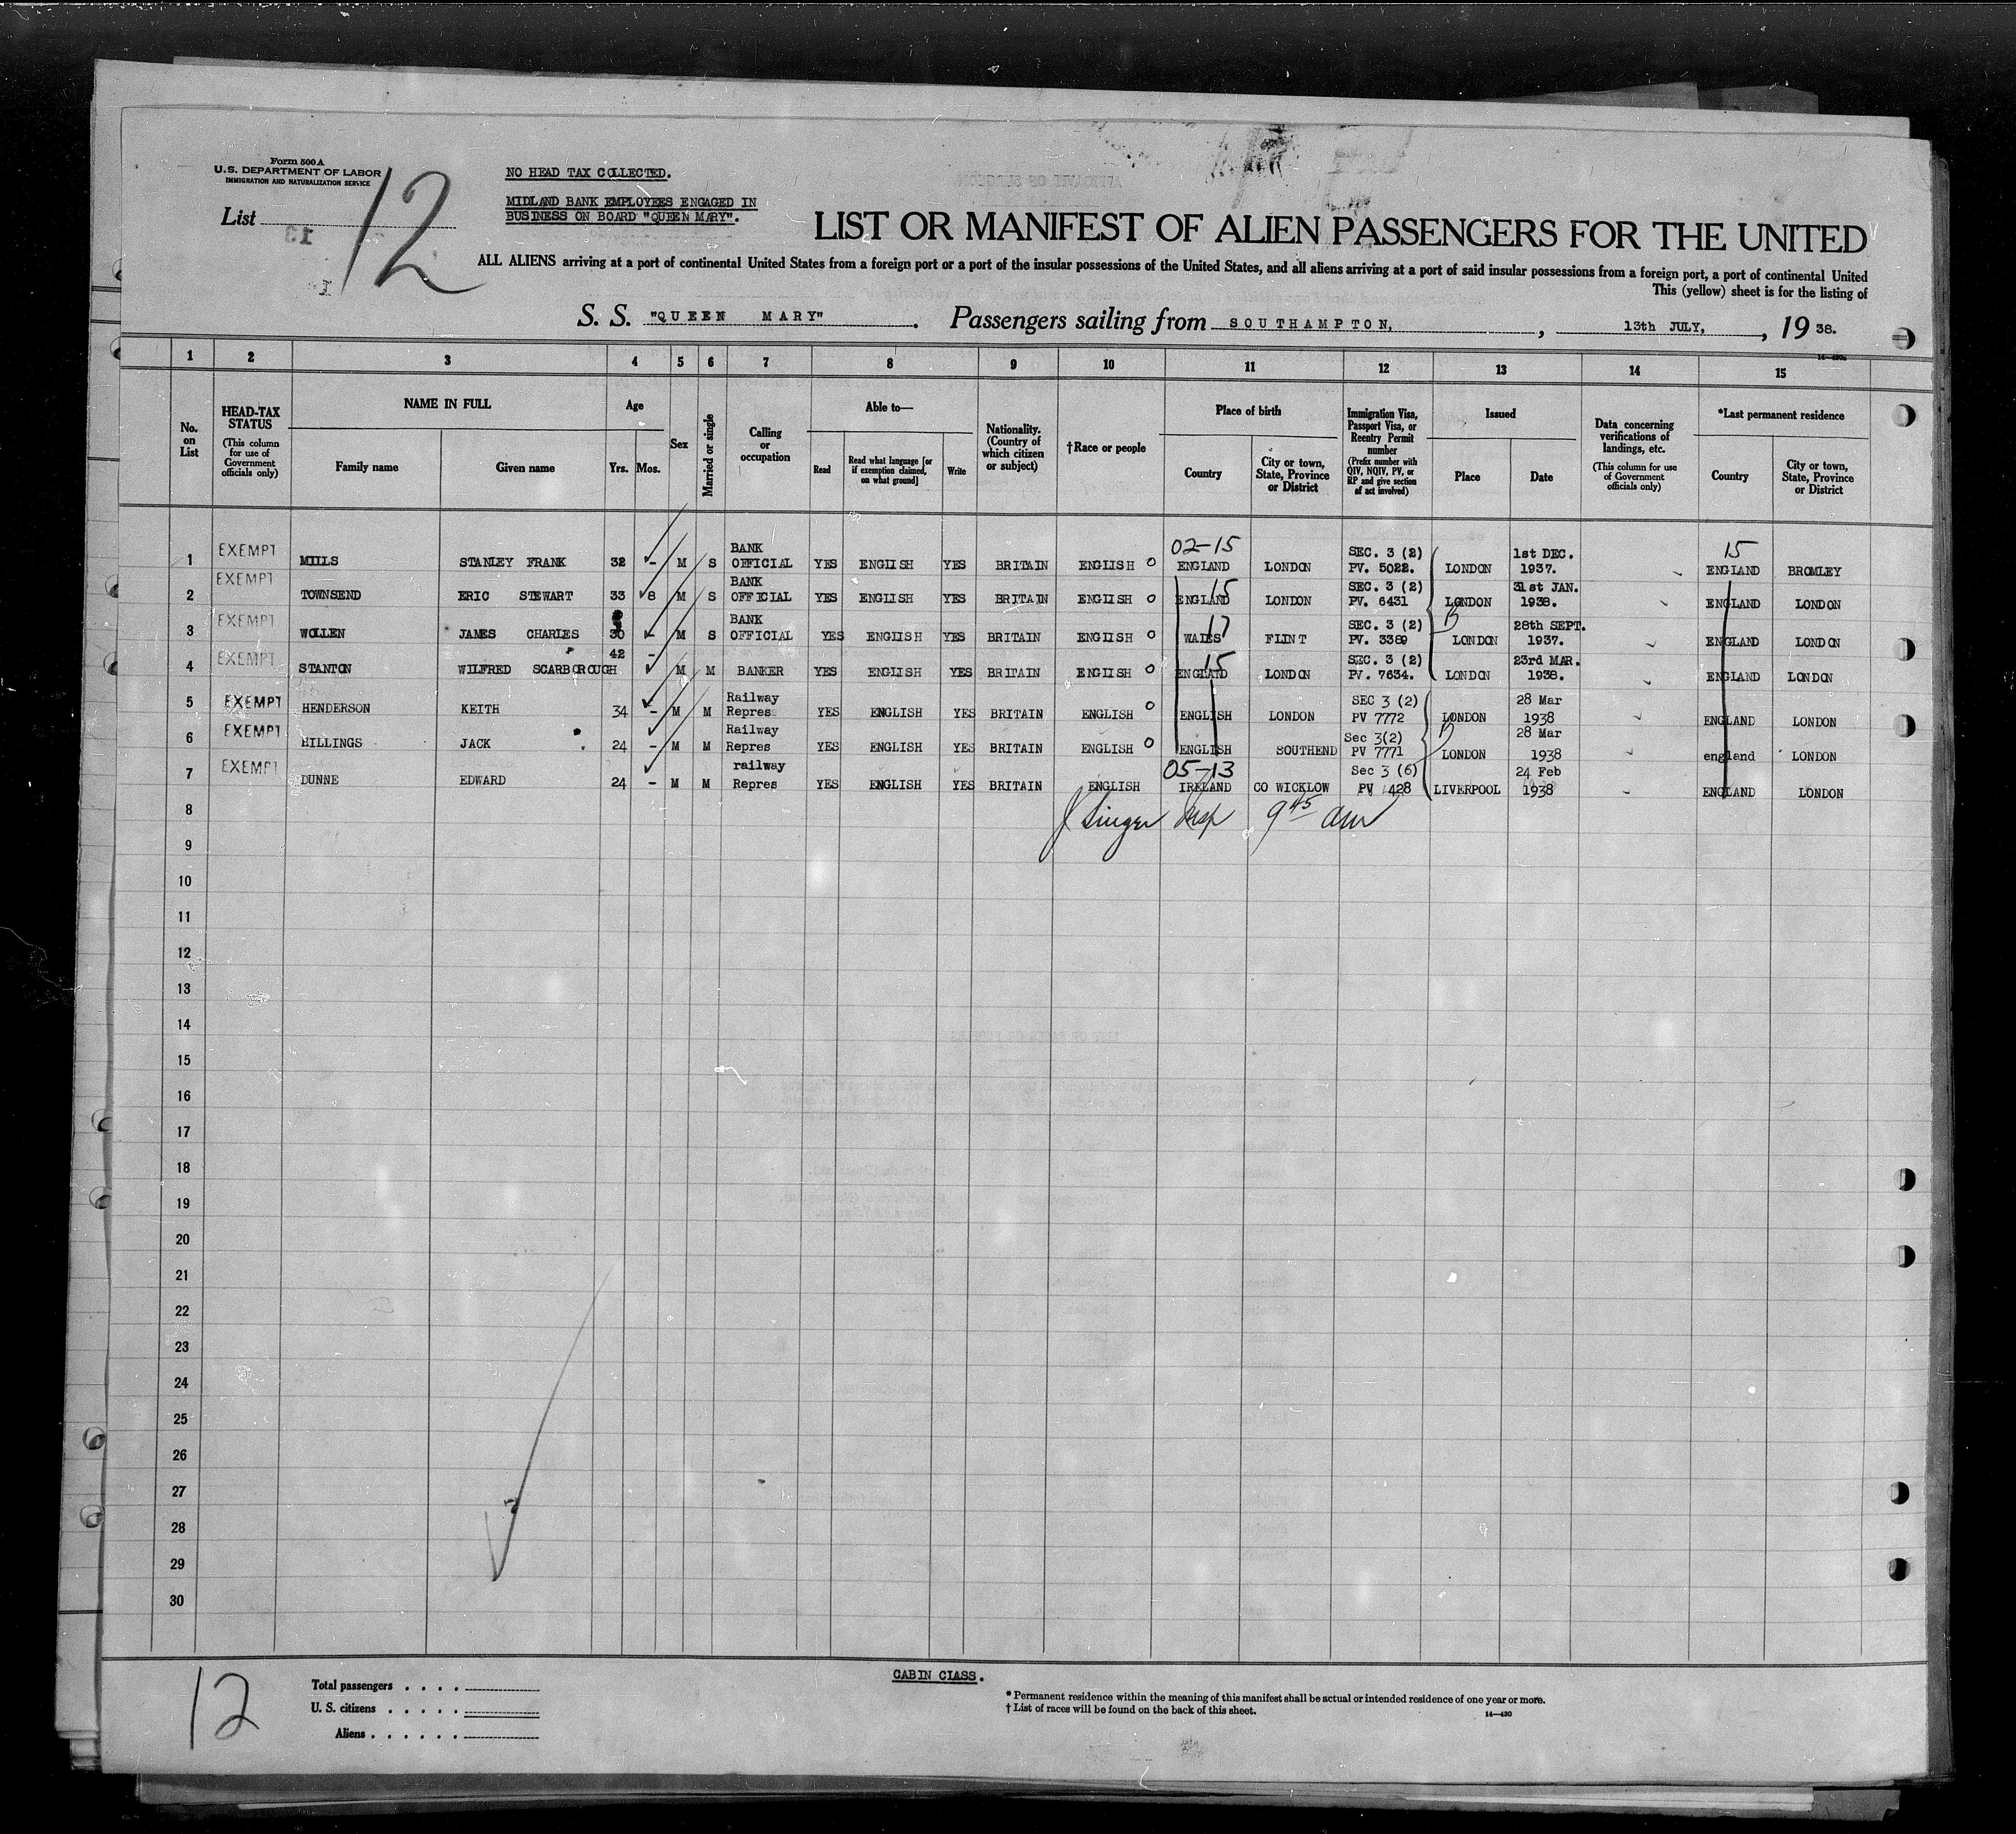 Form 500 A
U.S. DEPARTMENT OF LABOR
IMMIGRATION AND NATURALIZATION SERVICE
List 12
NO HEAD TAX COLLECTED.
MIDLAND BANK EMPLOYEES ENGAGED IN
BUSINESS ON BOARD "QUEEN MARY".
LIST OR MANIFEST OF ALIEN PASSENGERS FOR THE UNITED
ALL ALIENS arriving at a port of continental United States from a foreign port or a port of the insular possessions of the United States, and all aliens arriving at a port of said insular possessions from a foreign port, a port of continental United
This (yellow) sheet is for the listing of
S. S. "QUEEN MARY". Passengers sailing from SOUTHAMPTON, , 13th JULY, , 19 38.
1 2 3 4 5 6 7 8 9 10 11 12 13 14 15
No. on List
HEAD-TAX STATUS (This column for use of Government officials only)
NAME IN FULL
Family name Given name
Age
Yrs. Mos.
Sex
Married or single
Calling or occupation
Able to—
Read Read what language [or if exemption claimed, on what ground] Write
Nationality. (Country of which citizen or subject)
†Race or people
Place of birth
Country City or town, State, Province or District
Immigration Visa, Passport Visa, or Reentry Permit number (Prefix number with QIV, NQIV, PV, or RP and give section of act involved)
Issued
Place Date
Data concerning verifications of landings, etc. (This column for use of Government officials only)
*Last permanent residence
Country City or town, State, Province or District
1 EXEMPT MILLS STANLEY FRANK 32 - M S BANK OFFICIAL YES ENGLISH YES BRITAIN ENGLISH 02-15 ENGLAND LONDON SEC. 3 (2) PV. 5022. LONDON 1st DEC. 1937. 15 ENGLAND BROMLEY
2 EXEMPT TOWNSEND ERIC STEWART 33 8 M S BANK OFFICIAL YES ENGLISH YES BRITAIN ENGLISH 15 ENGLAND LONDON SEC. 3 (2) PV. 6431 LONDON 31st JAN. 1938. ENGLAND LONDON
3 EXEMPT WOLLEN JAMES CHARLES 30 - M S BANK OFFICIAL YES ENGLISH YES BRITAIN ENGLISH 17 WALES FLINT SEC. 3 (2) PV. 3389 LONDON 28th SEPT. 1937. ENGLAND LONDON
4 EXEMPT STANTON WILFRED SCARBOROUGH 42 - M M BANKER YES ENGLISH YES BRITAIN ENGLISH 15 ENGLAND LONDON SEC. 3 (2) PV. 7634. LONDON 23rd MAR. 1938. ENGLAND LONDON
5 EXEMPT HENDERSON KEITH 34 - M M Railway Repres YES ENGLISH YES BRITAIN ENGLISH ENGLISH LONDON SEC 3 (2) PV 7772 LONDON 28 Mar 1938 ENGLAND LONDON
6 EXEMPT HILLINGS JACK 24 - M M Railway Repres YES ENGLISH YES BRITAIN ENGLISH ENGLISH SOUTHEND Sec 3(2) PV 7771 LONDON 28 Mar 1938 england LONDON
7 EXEMPT DUNNE EDWARD 24 - M M railway Repres YES ENGLISH YES BRITAIN ENGLISH 05-13 IRELAND CO WICKLOW Sec 3 (6) PV 428 LIVERPOOL 24 Feb 1938 ENGLAND LONDON
8 J Singer Insp 9 45 am
9
10
11
12
13
14
15
16
17
18
19
20
21
22
23
24
25
26
27
28
29
30
12
Total passengers . . . .
U. S. citizens . . . . .
Aliens . . . . . .
CABIN CLASS.
* Permanent residence within the meaning of this manifest shall be actual or intended residence of one year or more.
† List of races will be found on the back of this sheet.
14—430